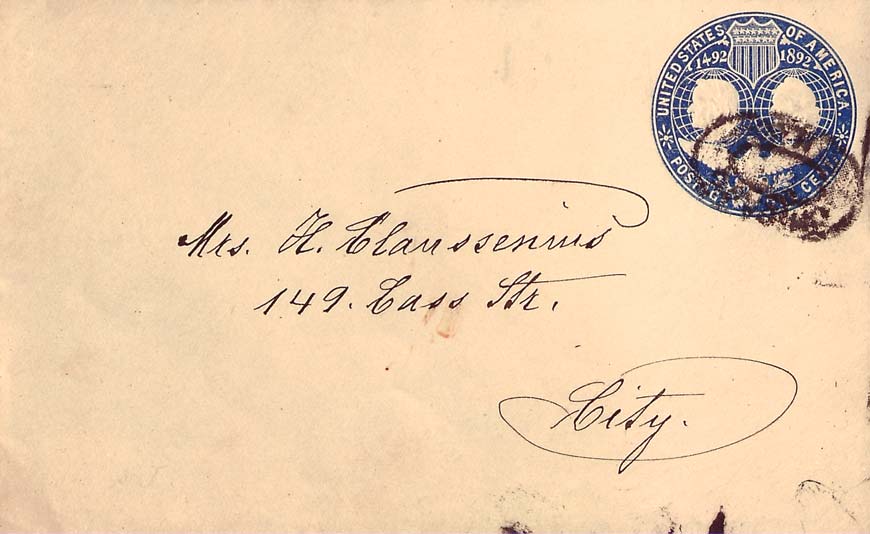 UNITED STATES OF AMERICA
1492 1892
POSTAGE ONE CENT.
Mrs. H. Claussenius
149. Cass Str.
City.